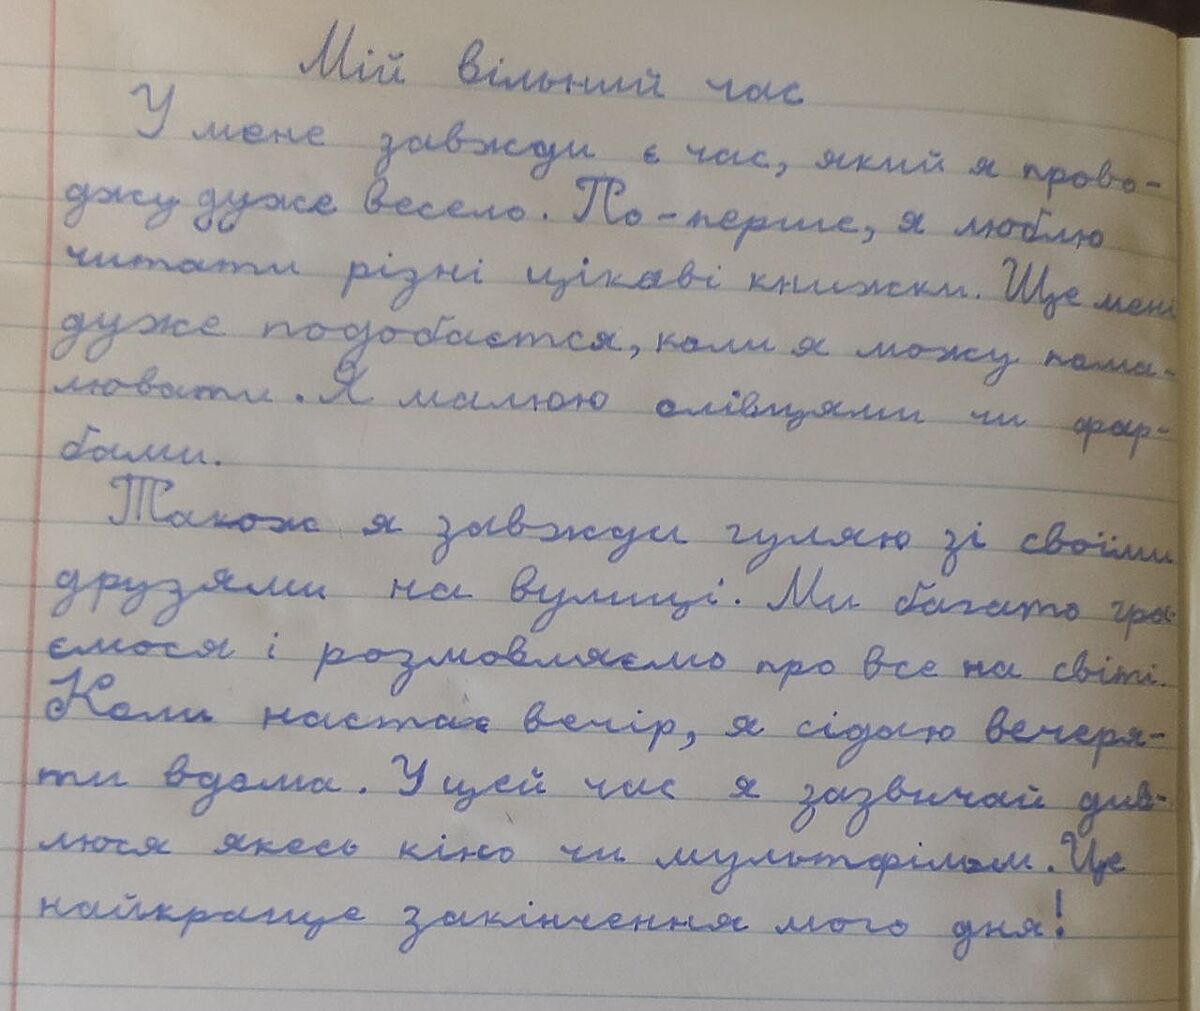 Мій вільний час
У мене завжди є час, який я прово-
джу дуже весело. По-перше, я люблю
читати різні цікаві книжки. Ще мені
дуже подобається, коли я можу пома-
лювати. Я малюю олівцями чи фар-
бами.
Також я завжди гуляю зі своїми
друзями на вулиці. Ми багато гра-
ємося і розмовляємо про все на світі.
Коли настає вечір, я сідаю вечеря-
ти вдома. У цей час я зазвичай див-
люся якесь кіно чи мультфільм. Це
найкраще закінчення мого дня!